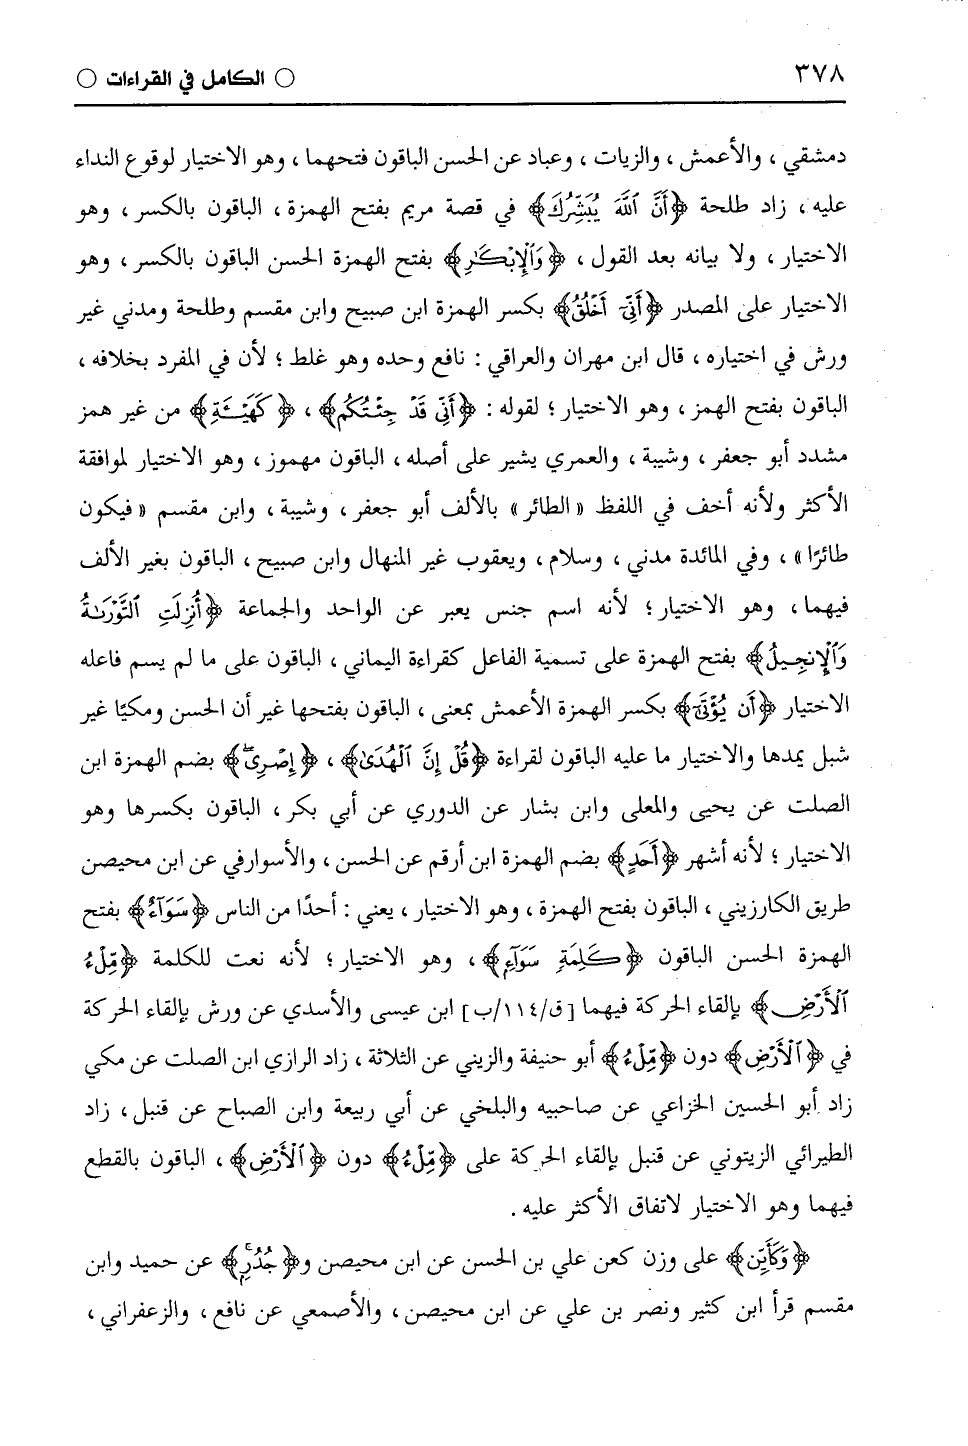 ٣٧٨
○ الكامل في القراءات ○
دمشقي ، والأعمش ، والزيات ، وعباد عن الحسن الباقون فتحهما ، وهو الاختيار لوقوع النداء
عليه ، زاد طلحة ﴿أَنَّ ٱللَّهَ يُبَشِّرُكَ﴾ في قصة مريم بفتح الهمزة ، الباقون بالكسر ، وهو
الاختيار ، ولا بيانه بعد القول ، ﴿وَٱلْإِبْكَٰرِ﴾ بفتح الهمزة الحسن الباقون بالكسر ، وهو
الاختيار على المصدر ﴿أَنِّىٓ أَخْلُقُ﴾ بكسر الهمزة ابن صبيح وابن مقسم وطلحة ومدني غير
ورش في اختياره ، قال ابن مهران والعراقي : نافع وحده وهو غلط ؛ لأن في المفرد بخلافه ،
الباقون بفتح الهمز ، وهو الاختيار ؛ لقوله : ﴿أَنِّى قَدْ جِئْتُكُم﴾ ، ﴿كَهَيْـَٔةِ﴾ من غير همز
مشدد أبو جعفر ، وشيبة ، والعمري يشير على أصله ، الباقون مهموز ، وهو الاختيار لموافقة
الأكثر ولأنه أخف في اللفظ « الطائر » بالألف أبو جعفر ، وشيبة ، وابن مقسم « فيكون
طائرًا » ، وفي المائدة مدني ، وسلام ، ويعقوب غير المنهال وابن صبيح ، الباقون بغير الألف
فيهما ، وهو الاختيار ؛ لأنه اسم جنس يعبر عن الواحد والجماعة ﴿أُنزِلَتِ ٱلتَّوْرَىٰةُ
وَٱلْإِنجِيلُ﴾ بفتح الهمزة على تسمية الفاعل كقراءة اليماني ، الباقون على ما لم يسم فاعله
الاختيار ﴿أَن يُؤْتَىٰٓ﴾ بكسر الهمزة الأعمش بمعنى ، الباقون بفتحها غير أن الحسن ومكيًا غير
شبل يمدها والاختيار ما عليه الباقون لقراءة ﴿قُلْ إِنَّ ٱلْهُدَىٰ﴾ ، ﴿إِصْرِى﴾ بضم الهمزة ابن
الصلت عن يحيى والمعلى وابن بشار عن الدوري عن أبي بكر ، الباقون بكسرها وهو
الاختيار ؛ لأنه أشهر ﴿أَحَدٍ﴾ بضم الهمزة ابن أرقم عن الحسن ، والأسوارفي عن ابن محيصن
طريق الكارزيني ، الباقون بفتح الهمزة ، وهو الاختيار ، يعني : أحدًا من الناس ﴿سَوَآءٌ﴾ بفتح
الهمزة الحسن الباقون ﴿كَلِمَةٍ سَوَآءٍ﴾ ، وهو الاختيار ؛ لأنه نعت للكلمة ﴿مِّلْءُ
ٱلْأَرْضِ﴾ بإلقاء الحركة فيهما [ق/١١٤/ب] ابن عيسى والأسدي عن ورش بإلقاء الحركة
في ﴿ٱلْأَرْضِ﴾ دون ﴿مِّلْءُ﴾ أبو حنيفة والزيني عن الثلاثة ، زاد الرازي ابن الصلت عن مكي
زاد أبو الحسين الخزاعي عن صاحبيه والبلخي عن أبي ربيعة وابن الصباح عن قنبل ، زاد
الطيرائي الزيتوني عن قنبل بإلقاء الحركة على ﴿مِّلْءُ﴾ دون ﴿ٱلْأَرْضِ﴾ ، الباقون بالقطع
فيهما وهو الاختيار لاتفاق الأكثر عليه .
﴿وَكَأَيِّن﴾ على وزن كعن علي بن الحسن عن ابن محيصن و﴿جُدُرٍ﴾ عن حميد وابن
مقسم قرأ ابن كثير ونصر بن علي عن ابن محيصن ، والأصمعي عن نافع ، والزعفراني ،